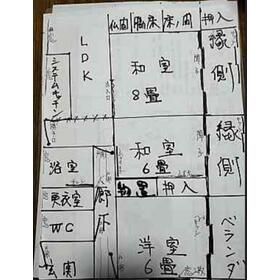 仏間
床の間
押入
LDK
システムキッチン
和室
8畳
縁側
和室
6畳
縁側
浴室
廊下
物置
押入
更衣室
WC
洋室
6畳
ベランダ
玄関